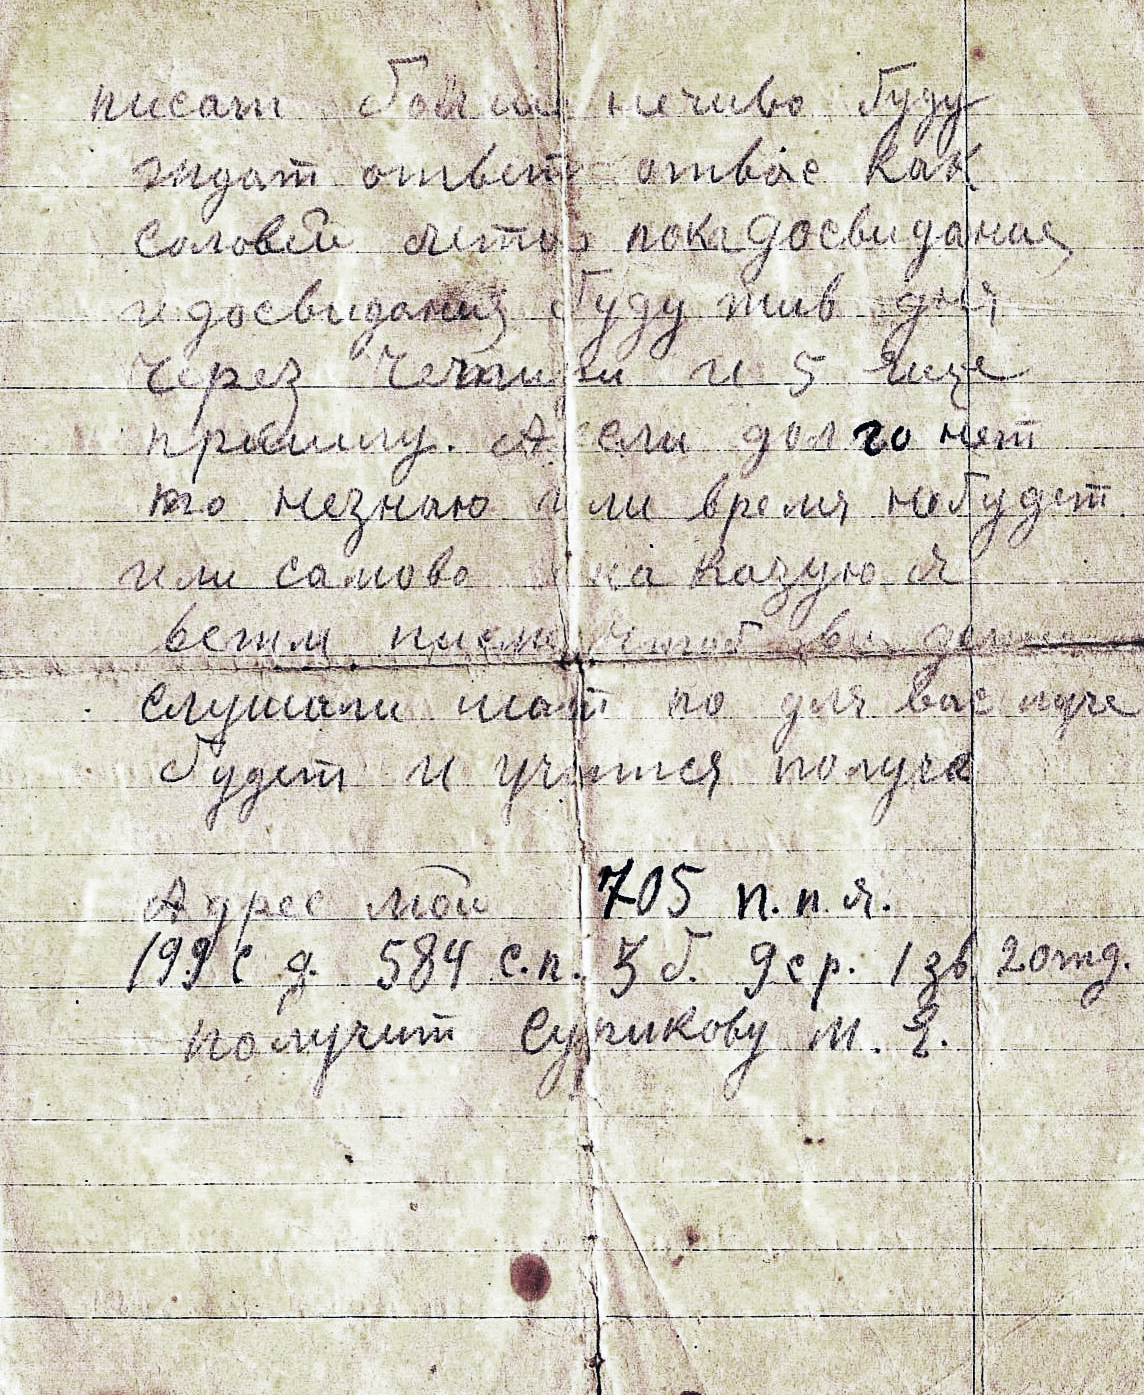 писати болше нечиво буду
ждат ответ отвас как
соловей лето покадосвидания
и досвидания буду жив дня
через четыри и 5 яище
пришлу. А если долго нет
то незнаю или время небудет
или самово я наказую я
ветим писме чтоб ви
слушали мат то для вас луче
будет и учится получе
Адрес мой 705 п.п.я.
199 с д. 584 с.п. 3 б. 9 ср. 1 зв. 2 отд.
получит Супикову М. Я.